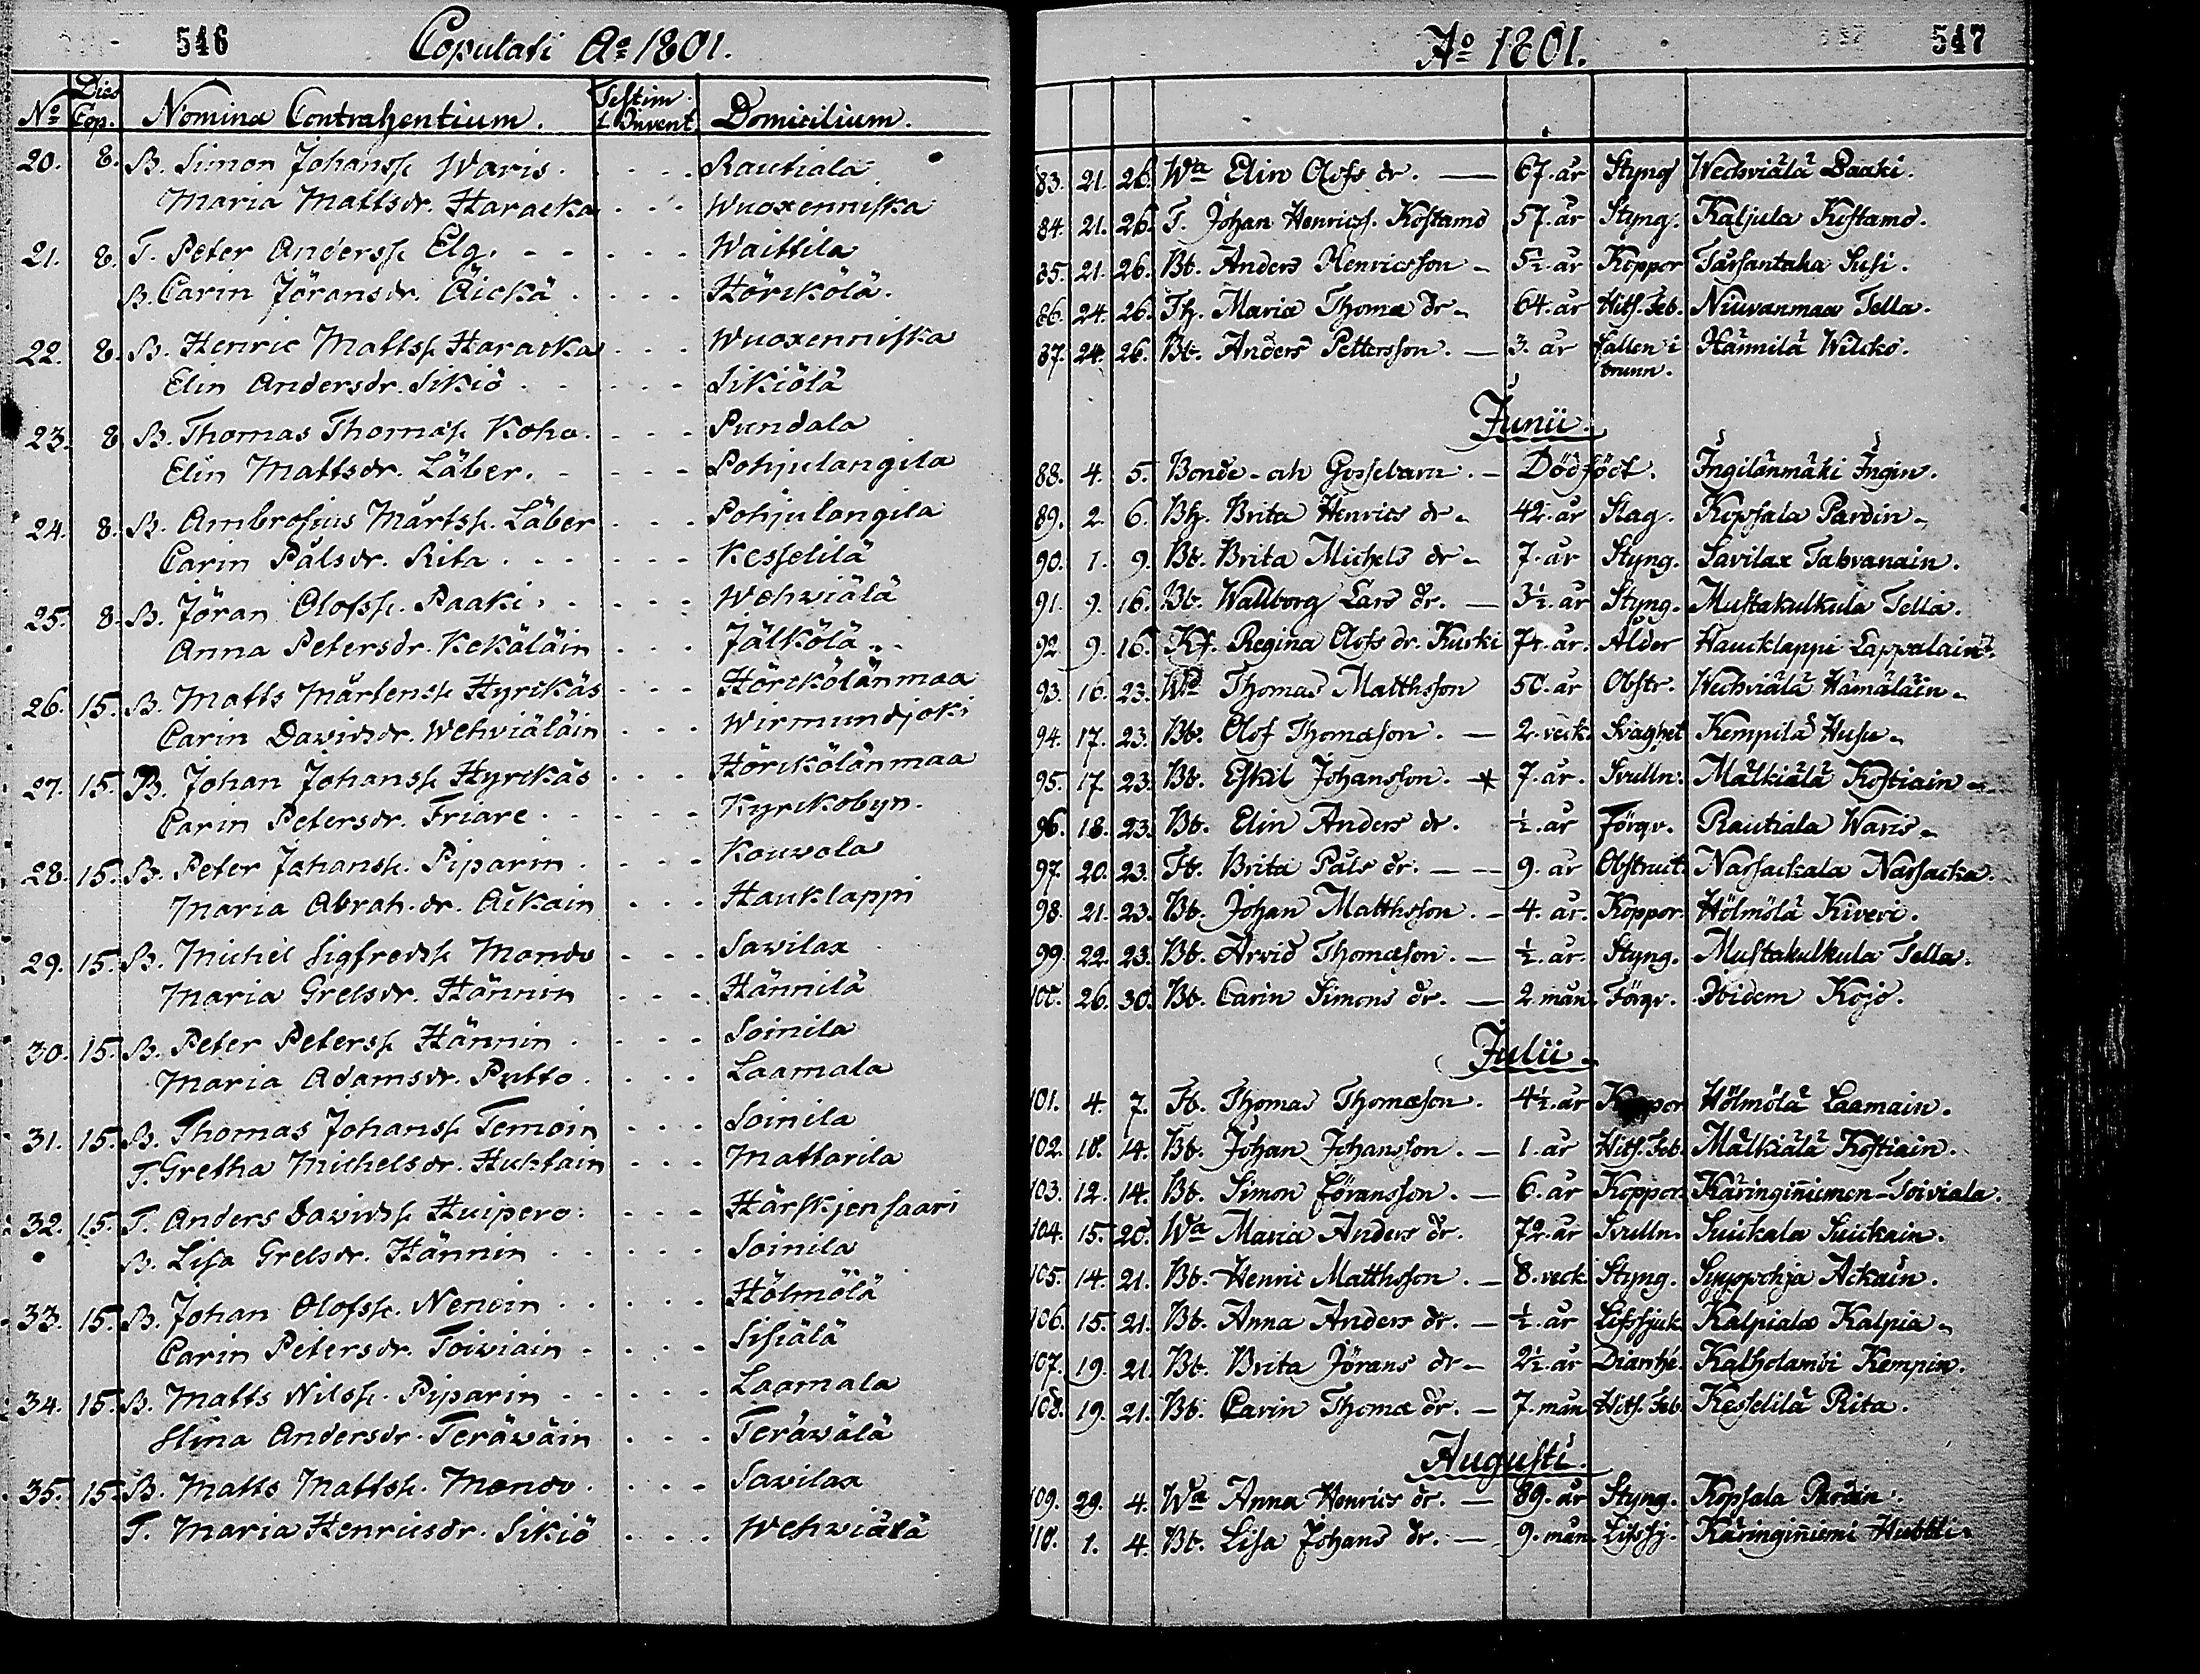 546 Copulati Aº 1801.
Nº Dies Cop. Nomina Contrahentium. Testim. Domicilium.
20. 8. B. Simon Johanss. Waris. Rautiala
Maria Mattsdr. Haracka Wuoxenniska
21. 8. T. Peter Anderss. Elg. Waittila
B. Carin Jöransdr. Äickä Hörckölä.
22. 8. B. Henric Mattss. Haracka Wuoxenniska
Elin Andersdr. Sikiö Sikiölä
23. 8. B. Thomas Thomass. Koho. Pundala
Elin Mattsdr. Läber. Pohjulangila
24. 8. B. Ambrosius Mårtss. Läber Pohjulangila
Carin Pålsdr. Rita Kesselilä
25. 8. B. Jöran Olofss. Paaki. Wehwiälä
Anna Petersdr. Kekäläin Jälkölä
26. 15. B. Matts Mårtenss. Hyrckäs Hörckölänmaa
Carin Davidsdr. Wehviäläin Wirmundjoki
27. 15. B. Johan Johanss. Hyrckäs Hörckölänmaa
Carin Petersdr. Friare Kyrckobyn.
28. 15. B. Peter Johanss. Piparin Kouvola
Maria Abrah. dr. Äikain Hauklappi
29. 15. B. Michel Sigfredss. Mondo Savilax
Maria Grelsdr. Hännin Hännilä
30. 15. B. Peter Peterss. Hännin Soinila
Maria Adamsdr. Putto Laamala
31. 15. B. Thomas Johanss. Temoin Soinila
T. Gretha Michelsdr. Huhtain Mattarila
32. 15. T. Anders Davidss. Huipero Härskjensaari
B. Lisa Grelsdr. Hännin Soinila
33. 15. B. Johan Olofss. Nenoin Hölmölä
Carin Petersdr. Toiviain Sisiälä
34. 15. B. Matts Nilss. Piparin Laamala
Stina Andersdr. Teräwäin Teräwälä
35. 15. B. Matts Mattss. Mondo Savilax
T. Maria Henricsdr. Sikiö Wehwiälä
Aº 1801. 547
83. 21. 26. Wa Elin Olofs dr. 67. år Styng Wechviälä Paaki.
84. 21. 26. T. Johan Henricss. Kostamo 57. år Styng. Kaljula Kostamo.
85. 21. 26. Bt. Anders Henricsson 5½. år Koppor Tarsantaka Susi.
86. 24. 26. Th. Maria Thomæ dr 64. år Hits. Feb. Niuvanmaa Tella.
87. 24. 26. Bt. Anders Pettersson. 3. år fallen i brunn. Hännilä Wilcko.
Junii.
88. 4. 5. Bonde-ah Gossebarn. Dödfödt. Ingilänmäki Ingin.
89. 2. 6. Bh. Brita Henrics dr 42. år Slag. Kopsala Pardin
90. 1. 9. Bt. Brita Michels dr 7. år Styng. Savilax Tahvanain.
91. 9. 16. Bt. Wallborg Lars dr. 3½. år Styng. Mustakulkula Tella.
92. 9. 16. Kf. Regina Olofs dr. Kurki 71. år. Ålder Hauklappi Lappalain.
93. 16. 23. Wd Thomas Matthsson 50. år Obstr. Wechviälä Hämäläin
94. 17. 23. Bt. Olof Thomæson. 2. veck. Svaghet Kempilä Husu
95. 17. 23. Bt. Eskil Johansson. 7. år. Svulln. Mälkiälä Kostiain
96. 18. 23. Bt. Elin Anders dr. ½. år Förgv. Rautiala Waris
97. 20. 23. Tt. Brita Påls dr. 9. år Obstruct. Narsackala Narsacka.
98. 21. 23. Bt. Johan Matthsson. 4. år. Koppor. Hölmölä Kiveri.
99. 22. 23. Bt. Arvid Thomæson. ½. år. Styng. Mustakulkula Tella.
100. 26. 30. Bt. Carin Simons dr. 2 mån. Förgv. Ibidem Kojo.
Julii
101. 4. 7. Tt. Thomas Thomæson. 4½. år Koppor Hölmölä Laamain.
102. 10. 14. Bt. Johan Johansson. 1. år Hits. Feb. Mälkiälä Kostiain.
103. 12. 14. Bt. Simon Jöransson. 6. år Koppor. Käringiniemen Toiviala.
104. 15. 20. Wa Maria Anders dr. 72. år Svulln. Suickala Suickain.
105. 14. 21. Bt. Henric Matthsson. 8. veck. Styng. Syyspohja Ackain.
106. 15. 21. Bt. Anna Anders dr. ½. år Lifssjuk. Kalpiala Kalpia
107. 19. 21. Bt. Brita Jörans dr 2½. år Diarrhé. Katholambi Kempin.
108. 19. 21. Bt. Carin Thomæ dr. 7. mån. Hits. Feb. Kesselilä Rita.
Augusti.
109. 29. 4. Wa Anna Henrics dr. 89. år Styng. Kopsala Pardin.
110. 1. 4. Bt. Lisa Johans dr. 9. mån. Lifssj. Käringiniemi Huttli